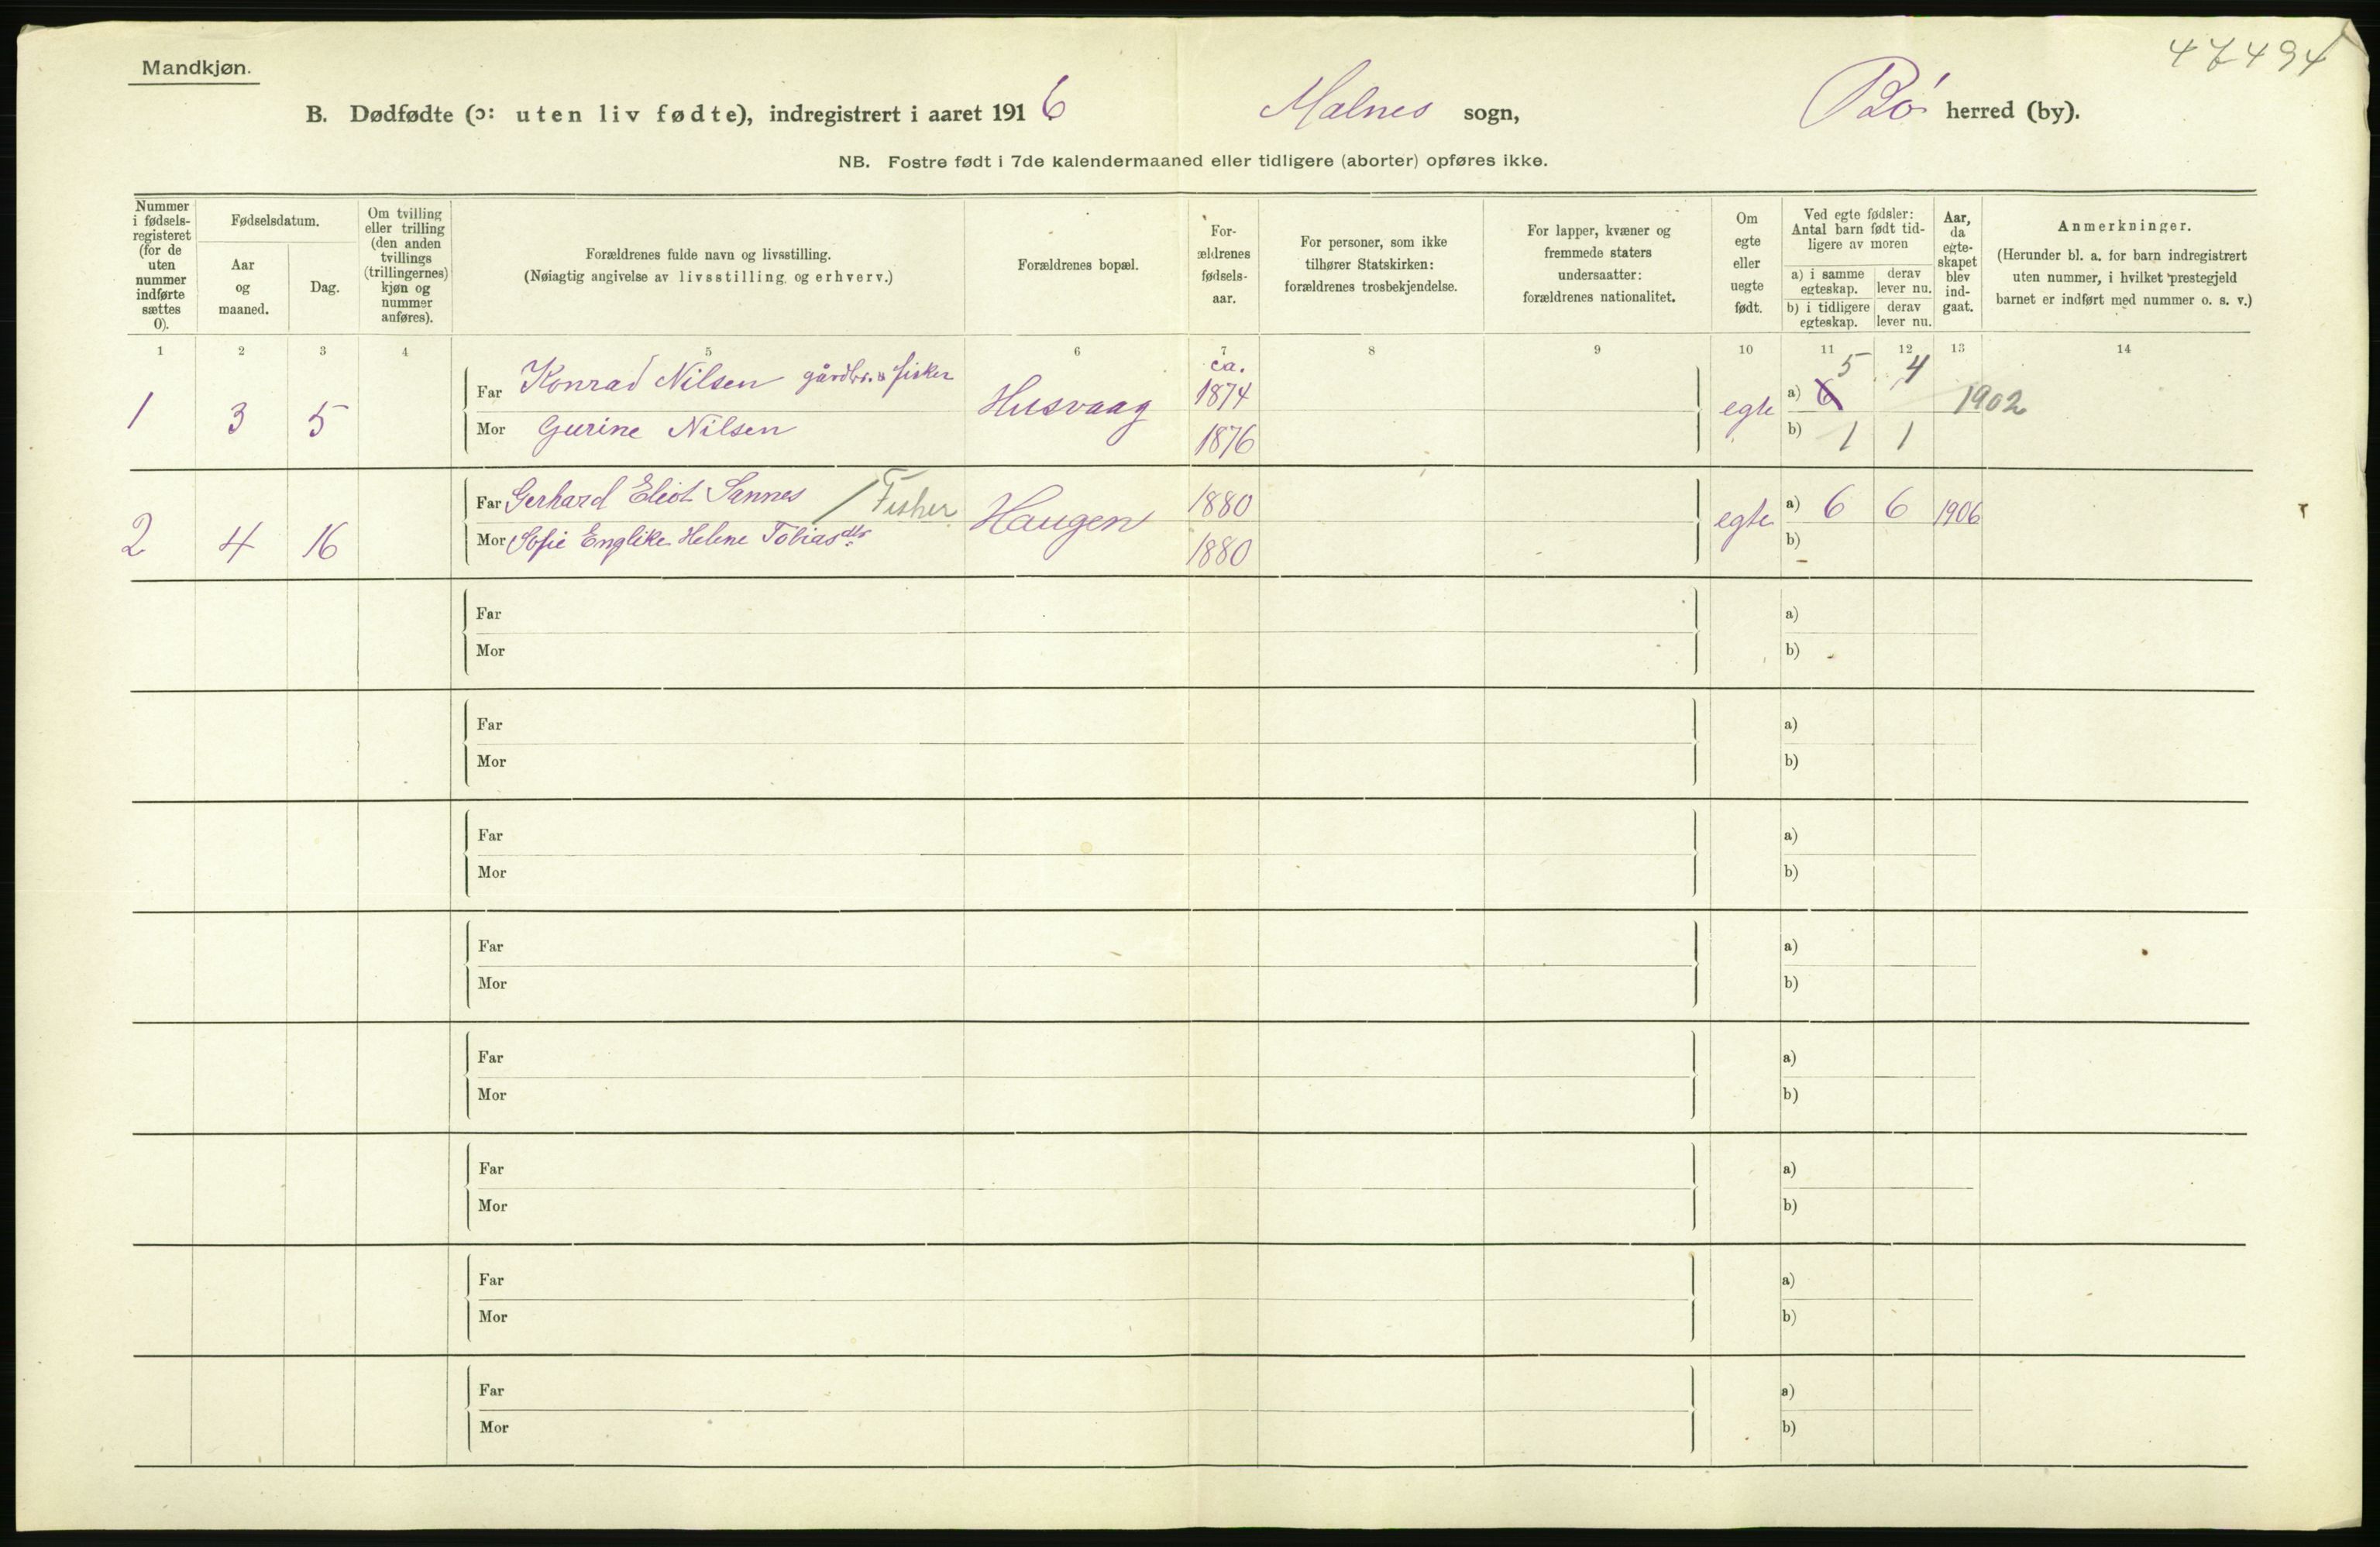 47494
Mandkjøn.
B. Dødfødte (ɔ: uten liv fødte), indregistrert i aaret 1916 Malnes sogn, Bø herred (by).
NB. Fostre født i 7de kalendermaaned eller tidligere (aborter) opføres ikke.
Nummer i fødsels-registeret (for de uten nummer indførte sættes 0).
Fødselsdatum.
Aar og maaned.
Dag.
Om tvilling eller trilling (den anden tvillings (trillingernes) kjøn og nummer anføres).
Forældrenes fulde navn og livsstilling.
(Nøiagtig angivelse av livsstilling og erhverv.)
Forældrenes bopæl.
For-ældrenes fødsels-aar.
For personer, som ikke tilhører Statskirken: forældrenes trosbekjendelse.
For lapper, kvæner og fremmede staters undersaatter: forældrenes nationalitet.
Om egte eller uegte født.
Ved egte fødsler: Antal barn født tid-ligere av moren
a) i samme egteskap.
derav lever nu.
b) i tidligere egteskap.
derav lever nu.
Aar, da egte-skapet blev ind-gaat.
Anmerkninger.
(Herunder bl. a. for barn indregistrert uten nummer, i hvilket prestegjeld barnet er indført med nummer o. s. v.)
1 2 3 4 5 6 7 8 9 10 11 12 13 14
1 3 5 Far Konrad Nilsen gårdbr. & fisker Husvaag ca. 1874 egte a) 6 5 4 1902
Mor Gurine Nilsen 1876 b) 1 1
2 4 16 Far Gerhard Eliot Sannes / Fisker Haugen 1880 egte a) 6 6 1906
Mor Sofie Englike Helene Tobiasdtr 1880 b) -
Far a)
Mor b)
Far a)
Mor b)
Far a)
Mor b)
Far a)
Mor b)
Far a)
Mor b)
Far a)
Mor b)
Far a)
Mor b)
Far a)
Mor b)